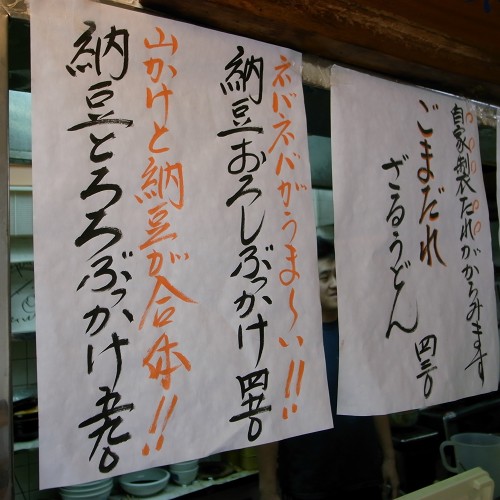 自家製だれがからみます
ごまだれ
ざるうどん
四三〇
ネバネバがうま〜い!!
納豆おろしぶっかけ 四五〇
山かけと納豆が合体!!
納豆とろろぶっかけ 五九〇